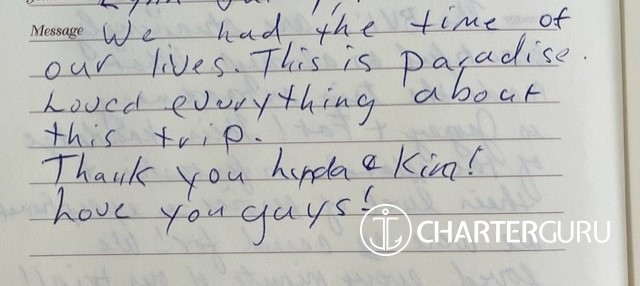 Message We had the time of
our lives. This is paradise.
Loved everything about
this trip.
Thank you & Kim!
Love you guys!
CHARTERGURU